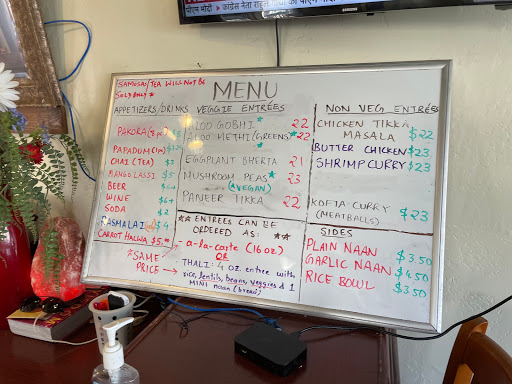 पीएम मोदी • कांग्रेस नेता राहुल
SAMOSAS/TEA WILL NOT BE
SOLD ONLY *
MENU
APPETIZERS/DRINKS
PAKORA
PAPADUM
CHAI (TEA) $3
MANGO LASSI $5
BEER
WINE $6+
SODA $2
RASMALAI $4
CARROT HALWA $5.
*SAME
PRICE
VEGGIE ENTRÉES
ALOO GOBHI * 22
ALOO METHI (GREENS)* 22
EGGPLANT BHERTA 21
MUSHROOM PEAS * 23
(*VEGAN)
PANEER TIKKA 22
** ENTREES CAN BE
ORDERED AS: **
- a-la-carte (16 oz)
OR
THALI: 4 oz. entree with
rice, lentils, beans, veggies & 1
MINI naan (bread)
NON VEG ENTRÉES
CHICKEN TIKKA
MASALA $22
BUTTER CHICKEN $23
SHRIMP CURRY $23
KOFTA CURRY $23
(MEATBALLS)
SIDES
PLAIN NAAN $3.50
GARLIC NAAN $4.50
RICE BOWL $3.50